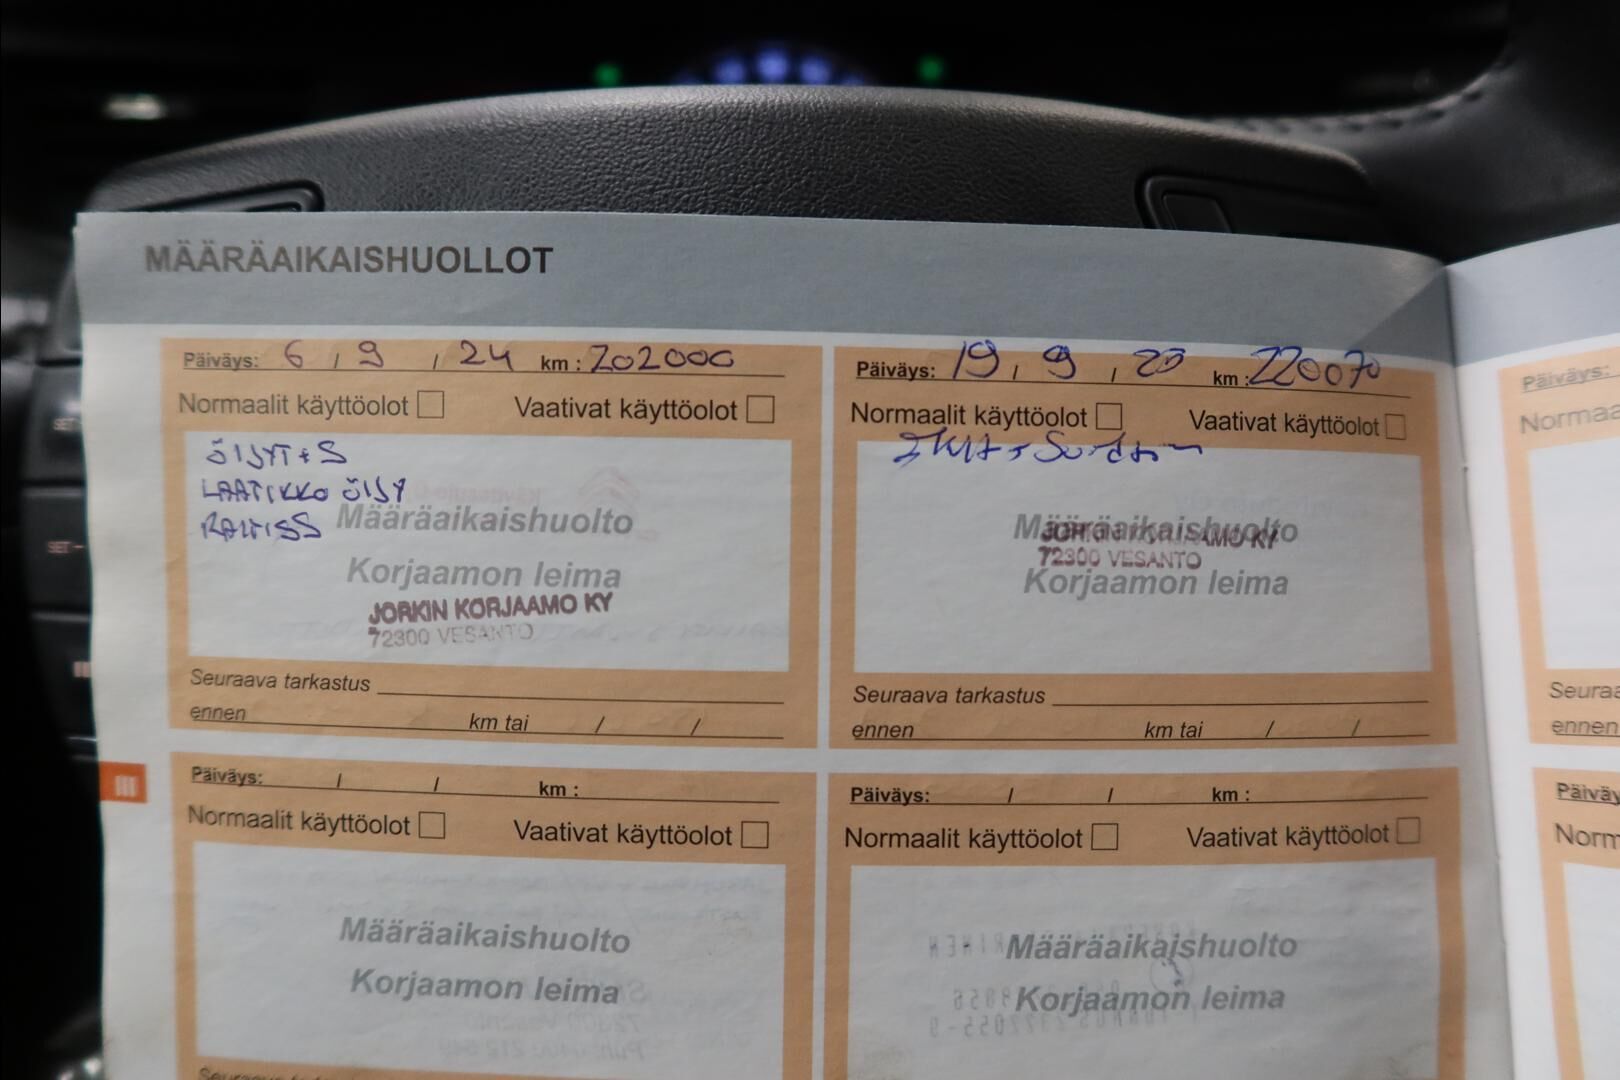 MÄÄRÄAIKAISHUOLLOT
Päiväys: 6 / 9 / 24 km : 202000
Normaalit käyttöolot Vaativat käyttöolot
ÖLJYT + S
LAATIKKO ÖLJY
Määräaikaishuolto
Korjaamon leima
JORKIN KORJAAMO KY
72300 VESANTO
Seuraava tarkastus
ennen km tai / /
Päiväys: 19 / 9 / km : 220070
Normaalit käyttöolot Vaativat käyttöolot
Määräaikaishuolto
JORKIN KORJAAMO KY
72300 VESANTO
Korjaamon leima
Seuraava tarkastus
ennen km tai / /
III
Päiväys: / / km :
Normaalit käyttöolot Vaativat käyttöolot
Määräaikaishuolto
Korjaamon leima
Päiväys: / / km :
Normaalit käyttöolot Vaativat käyttöolot
Määräaikaishuolto
Korjaamon leima
Päiväys:
ennen
SET -